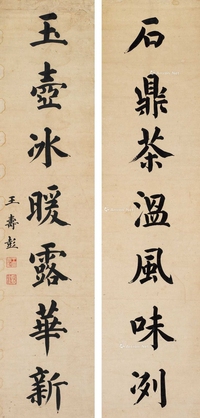 石鼎茶溫風味洌
玉壺冰暖露華新
王壽彭